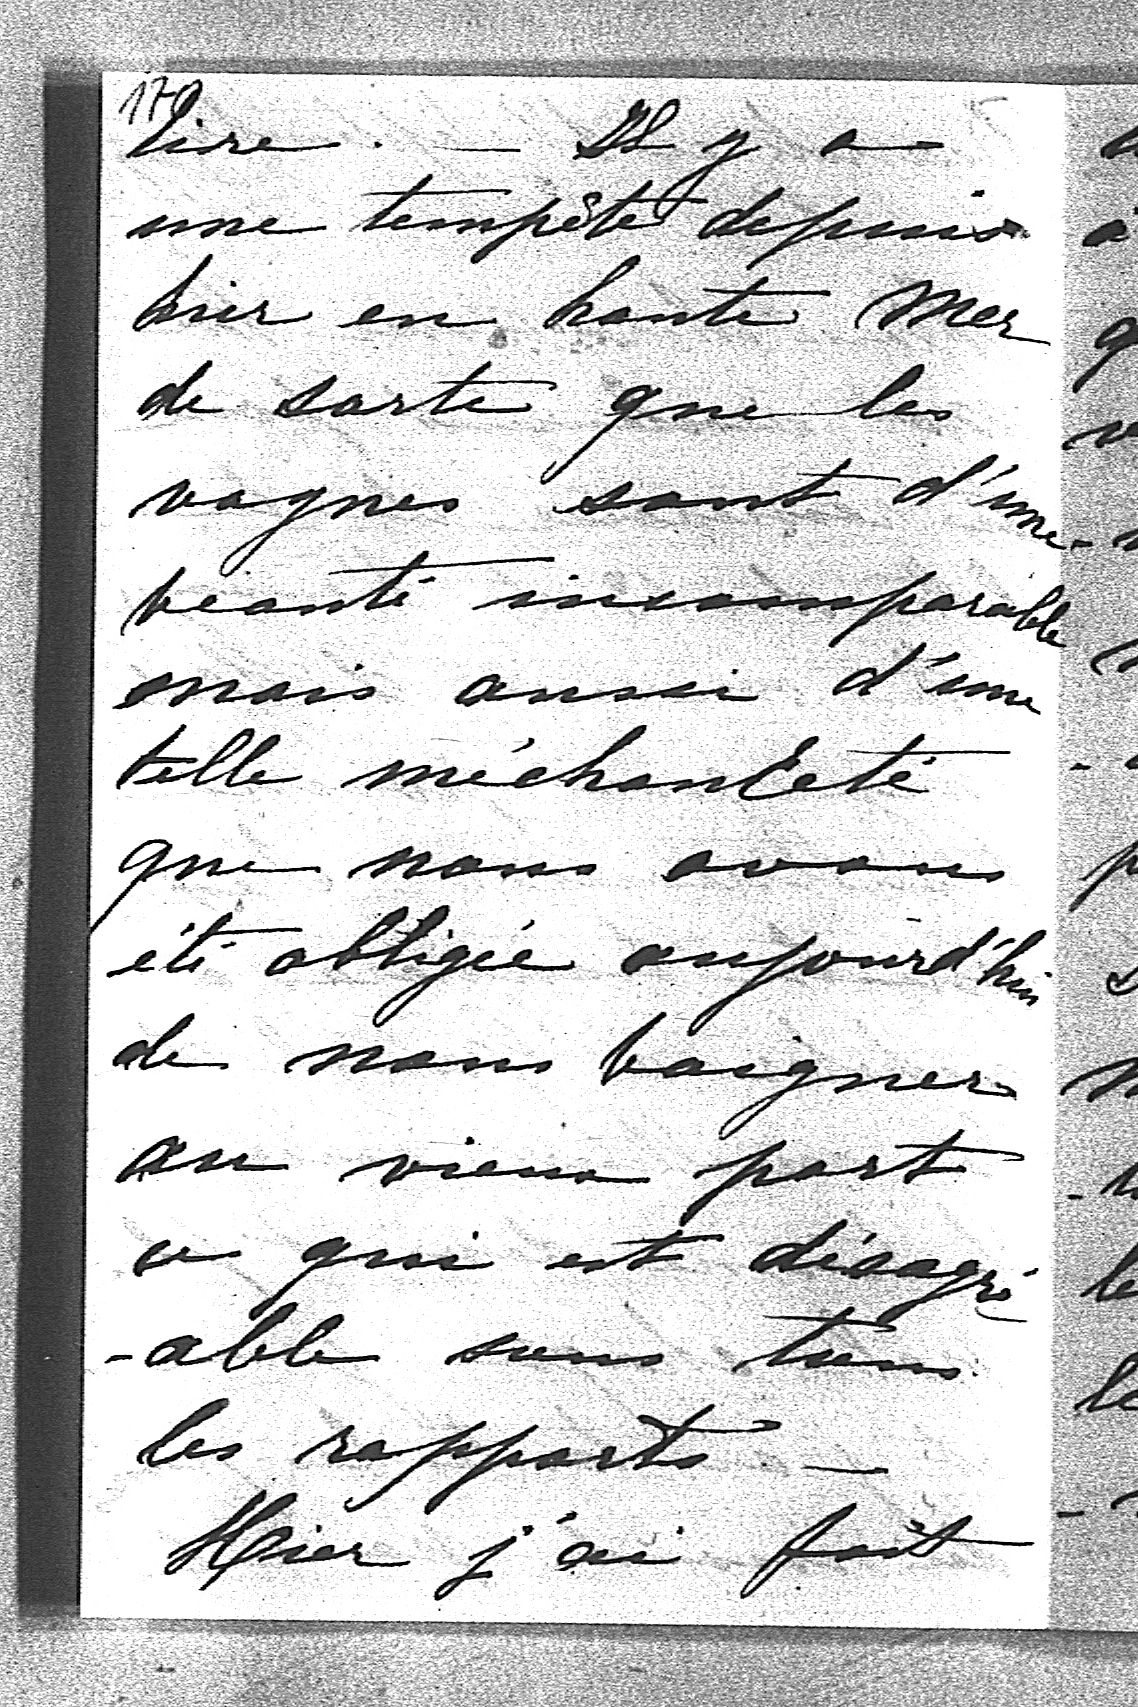 170
lire. — Il y a
une tempête depuis
hier en haute Mer
de sorte que les
vagues sont d'une
beauté incomparable
mais aussi d'une
telle méchanteté
que nous avons
été obligée aujourd'hui
de nous baigner
au vieux port
ce qui est désagré
-able sous tous
les rapports —
Hier j'ai fait